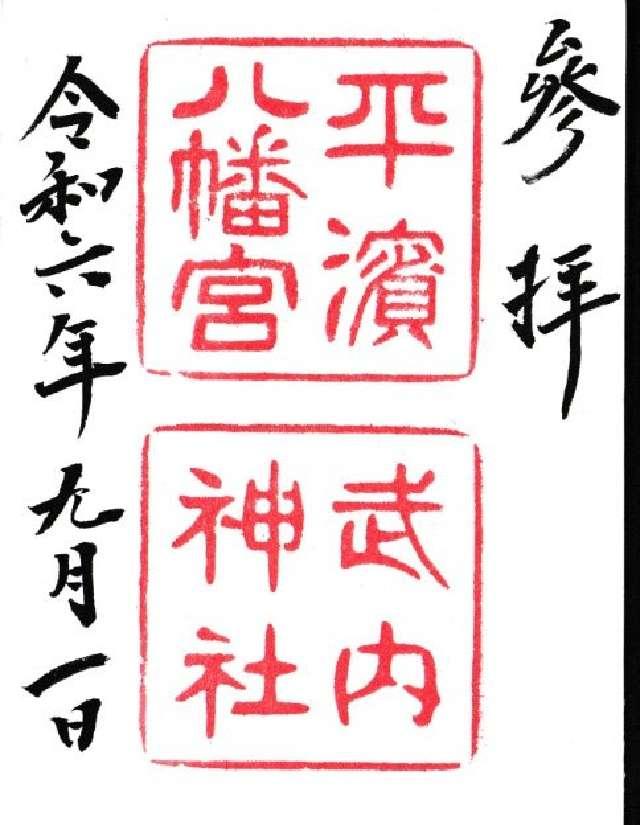 參拝
平濱
八幡宮
武内
神社
令和六年九月一日